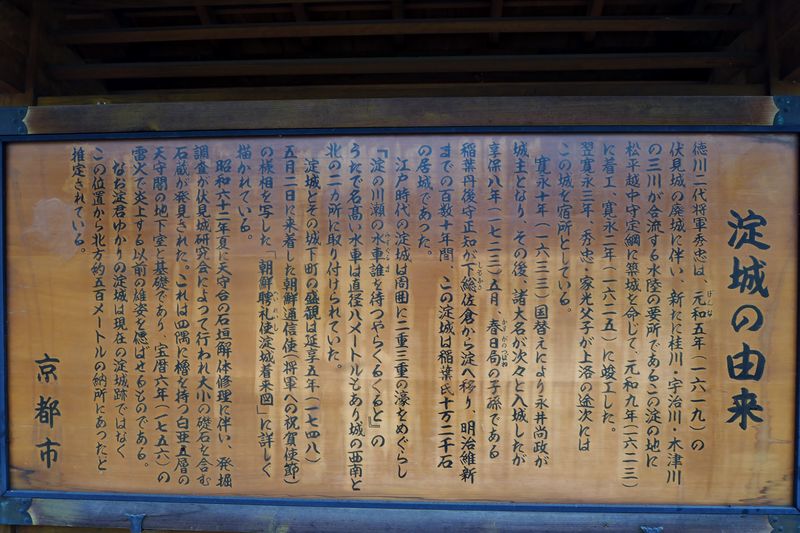 淀城の由来
徳川二代将軍秀忠は、元和五年(一六一九)の
伏見城の廃城に伴い、新たに桂川・宇治川・木津川
の三川が合流する水陸の要所であるこの淀の地に
松平越中守定綱に築城を命じて、元和九年(一六二三)
に着工、寛永二年(一六二五)に竣工した。
翌寛永三年、秀忠・家光父子が上洛の途次には
この城を宿所としている。
寛永十年(一六三三)国替えにより永井尚政が
城主となり、その後、諸大名が次々と入城したが
享保八年(一七二三)五月、春日局の子孫である
稲葉丹後守正知が下総佐倉から淀へ移り、明治維新
までの百数十年間、この淀城は稲葉氏十万二千石
の居城であった。
江戸時代の淀城は周囲に二重三重の濠をめぐらし
『淀の川瀬の水車誰を待つやらくるくると』の
うたで名高い水車は直径八メートルもあり城の西南と
北の二カ所に取り付けられていた。
淀城とその城下町の盛観は延享五年(一七四八)
五月二日に来着した朝鮮通信使(将軍への祝賀使節)
の様相を写した「朝鮮聘礼使淀城着来図」に詳しく
描かれている。
昭和六十二年夏に天守台の石垣解体修理に伴い、発掘
調査が伏見城研究会によって行われ大小の礎石を含む
石蔵が発見された。これは四隅に櫓を持つ白亜五層の
天守閣の地下室と基礎であり、宝暦六年(一七五六)の
雷火で炎上する以前の雄姿を偲ばせるものである。
なお淀君ゆかりの淀城は現在の淀城跡ではなく
この位置から北方約五百メートルの納所にあったと
推定されている。
京都市